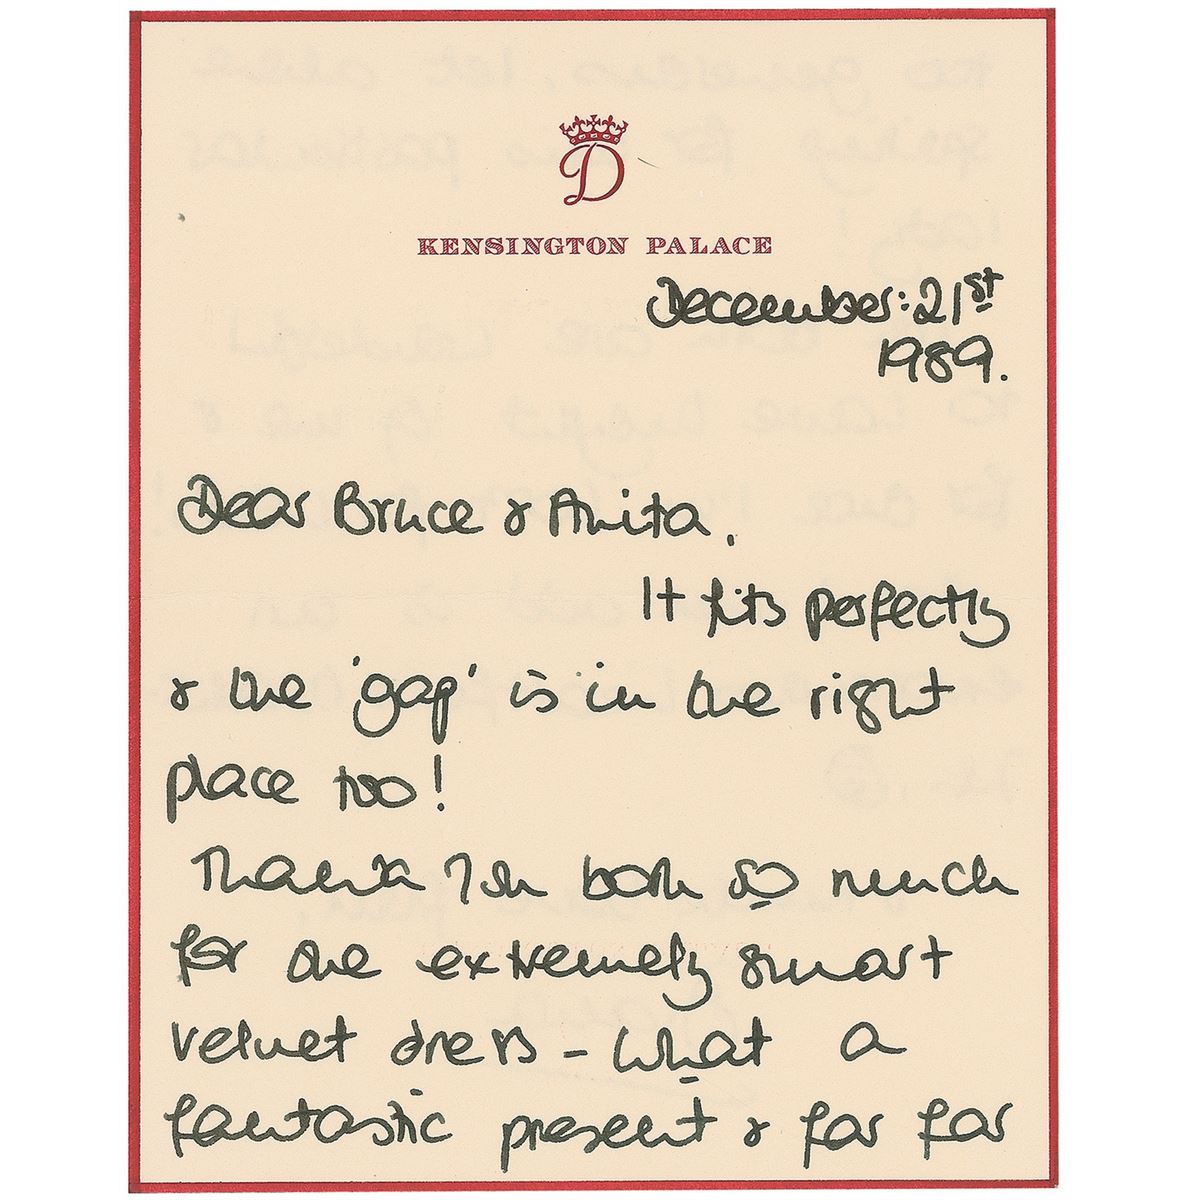 D
KENSINGTON PALACE
December: 21st
1989.
Dear Bruce & Anita,
It fits perfectly
& the 'gap' is in the right
place too!
Thank You both so much
for the extremely smart
velvet dress - what a
fantastic present & far far